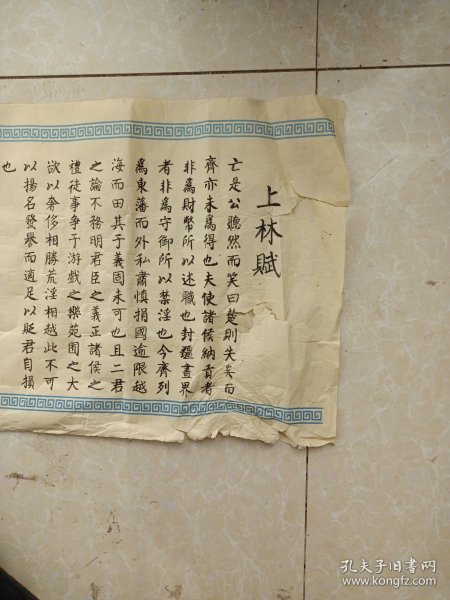 上林賦
亡是公聽然而笑曰楚則失矣而
齊亦未為得也夫使諸侯納貢者
非為財幣所以述職也封疆畫界
者非為守御所以禁淫也今齊列
為東藩而外私肅慎捐國逾限越
海而田其于義固未可也且二君
之論不務明君臣之義正諸侯之
禮徒事爭于游戲之樂苑囿之大
欲以奢侈相勝荒淫相越此不可
以揚名發譽而適足以貶君自損
也
孔夫子旧书网
www.kongfz.com